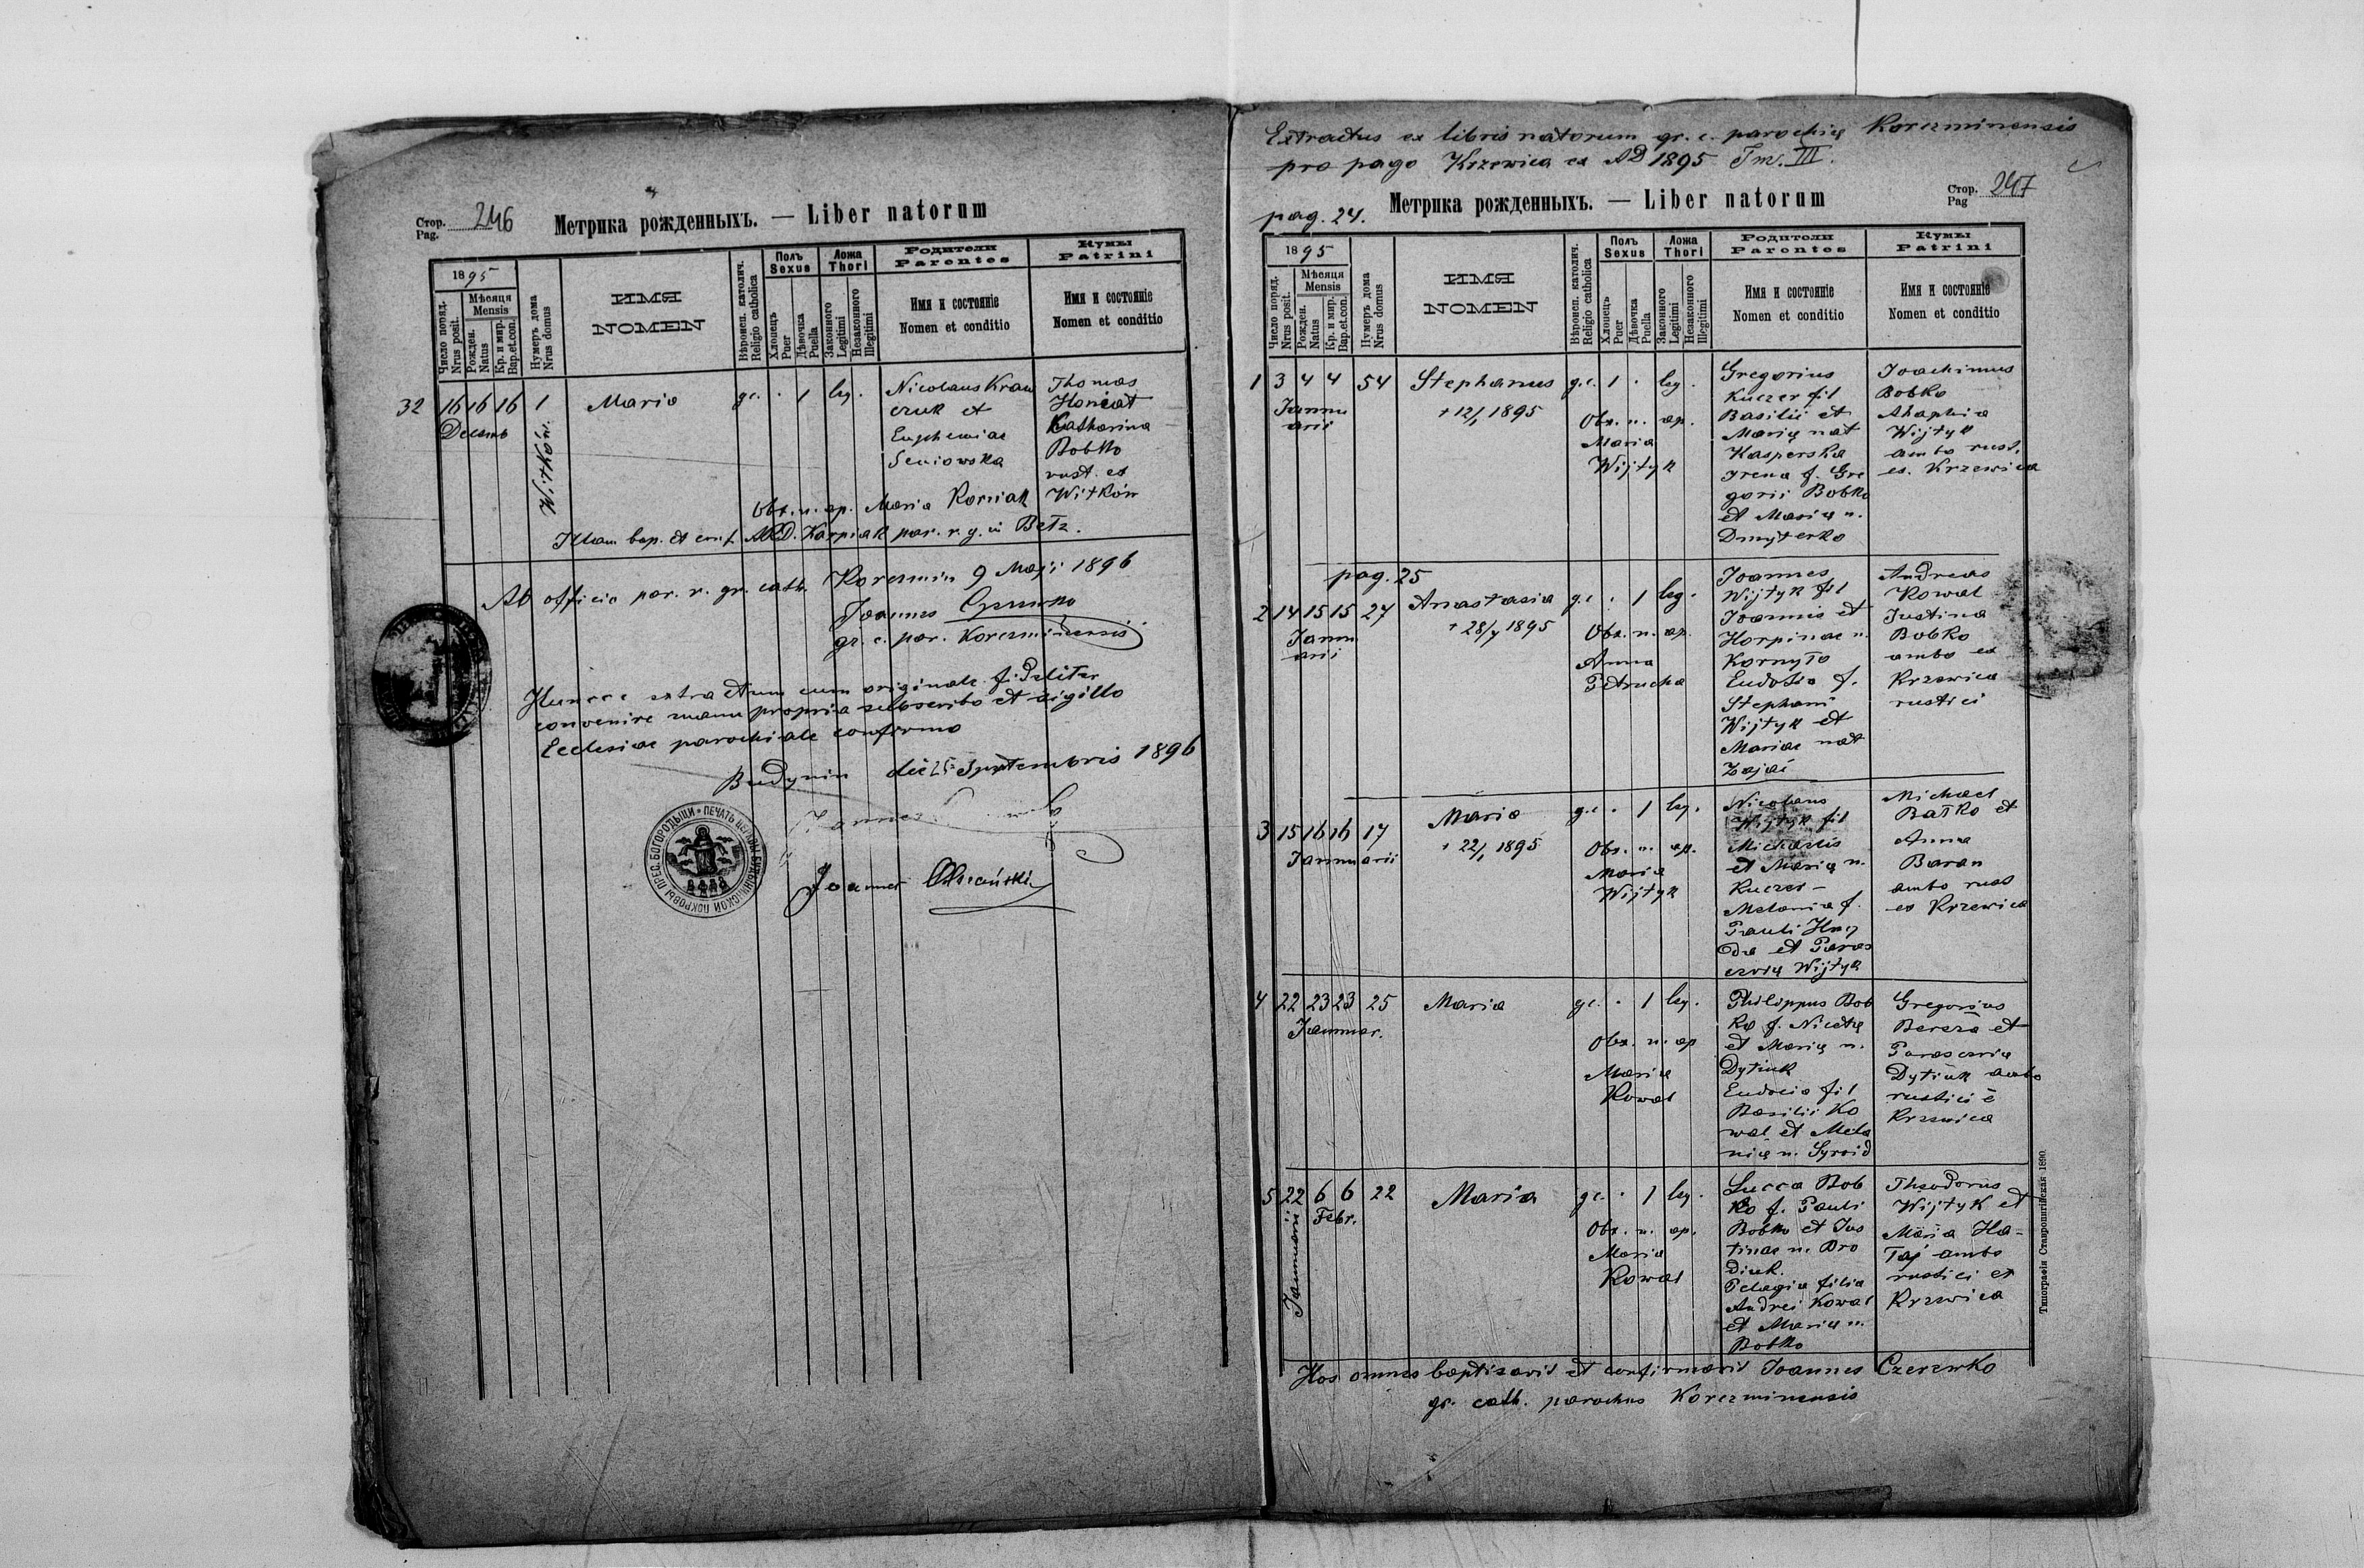 Стор.
Pag. 246
Метрика рожденныхъ. — Liber natorum
1895
Число поряд.
Nrus posit.
Мѣсяця
Mensis
Рожден.
Natus
Кр. и мир.
Bap.et.con.
Нумеръ дома
Nrus domus
ИМЯ
NOMEN
Вѣроисп. католич.
Religio catholica
Полъ
Sexus
Хлопецъ
Puer
Дѣвочка
Puella
Ложа
Thori
Законного
Legitimi
Незаконного
Illegitimi
Родители
Parentes
Имя и состояніе
Nomen et conditio
Кумы
Patrini
Имя и состояніе
Nomen et conditio
32 16 16 16 1 Maria gc. . 1 leg.
Decemb
Witków.
Nicolaus Kraw
czuk et
Euphemiae
Seniowska
Thomas
Honcat
Katharina
Bobko
rust. ex
Witków
Obs. n. ap. Maria Korniak
Illam bap. et conf. Karpiak par. r. g. in Bełz.
Ab officio par. r. gr. cath. Korczmin 9 Maji 1896
Joannes
gr. c. par. Korczminensis
Huncce extractum cum originale fideliter
convenire manu propria subscribo et sigillo
Ecclesiae parochiale confirmo
Budynin die 25 Septembris 1896
Joannes
ПЕЧАТЬ ЦЕРКВИ БУДЫНИНСКОЙ ПОКРОВЫ ПРЕС. БОГОРОДЫЦИ
Extractus ex libris natorum gr. c. parochię Korczminensis
pro pago Krzewica ex AD 1895 Tm. III.
Стор.
Pag 247
Метрика рожденныхъ. — Liber natorum
pag. 24.
1895
Число поряд.
Nrus posit.
Мѣсяця
Mensis
Рожден.
Natus
Кр. и мир.
Bap.et.con.
Нумеръ дома
Nrus domus
ИМЯ
NOMEN
Вѣроисп. католич.
Religio catholica
Полъ
Sexus
Хлопецъ
Puer
Дѣвочка
Puella
Ложа
Thori
Законного
Legitimi
Незаконного
Illegitimi
Родители
Parentes
Имя и состояніе
Nomen et conditio
Кумы
Patrini
Имя и состояніе
Nomen et conditio
1 3 4 4 54 Stephanus g.c. 1 . leg.
Janu
arii
+ 12/1 1895
Obs. n. ap.
Maria
Wijtyk
Gregorius
Kuczer fil
Basilii et
Marię nat
Kasperska
Irena f. Gre
gorii Bobko
et Marię n.
Dmyterko
Joachimus
Bobko
Ahaphia
Wijtyk
ambo rust.
ex. Krzewica
pag. 25
2 14 15 15 27 Anastasia g.c . 1 leg.
Janu
arii
+ 28/4 1895
Obs. n. ap.
Anna
Petrucha
Joannes
Wijtyk fil
Joannis et
Horpinae n.
Kornyło
Eudoxia f.
Stephani
Wijtyk et
Mariae nat
Zając
Andreas
Kowal
Justina
Bobko
ambo ex
Krzewica
rustici
3 15 16 16 17 Maria g.c . 1 leg.
Januarii
+ 22/1 1895
Obs. n. ap.
Maria
Wijtyk
Nicolaus
Wijtyk fil
Michaelis
et Marię n.
Kuczer —
Melania f.
Pauli Hny
da et Paras
cevię Wijtyk
Michael
Bałko et
Anna
Baran
ambo rust
ex Krzewica
4 22 23 23 25 Maria gc. . 1 leg.
Januar.
Obs. n. ap
Maria
Kowal
Philippus Bob
ko f. Nicetę
et Marię n.
Dytiuk
Eudocia fil
Basilii Ko
wal et Mela
nię n. Syroid
Gregorius
Bereza et
Parascevia
Dytiuk ambo
rustici e
Krzewica
5 22 6 6 22 Maria gc. . 1 leg.
Januarii
Febr.
Obs. n. ap.
Maria
Kowal
Lucca Bob
ko f. Pauli
Bobko et Jus
tinae n. Bro
diuk.
Pelagia filia
Andrei Kowal
et Marię n.
Bobko
Theodorus
Wijtyk et
Maria Ha-
łaj ambo
rustici ex
Krzewica
Hos omnes baptisavit et confirmavit Joannes Czerewko
gr. cath. parochus Korczminensis
Типографія Ставропигійская 1890.